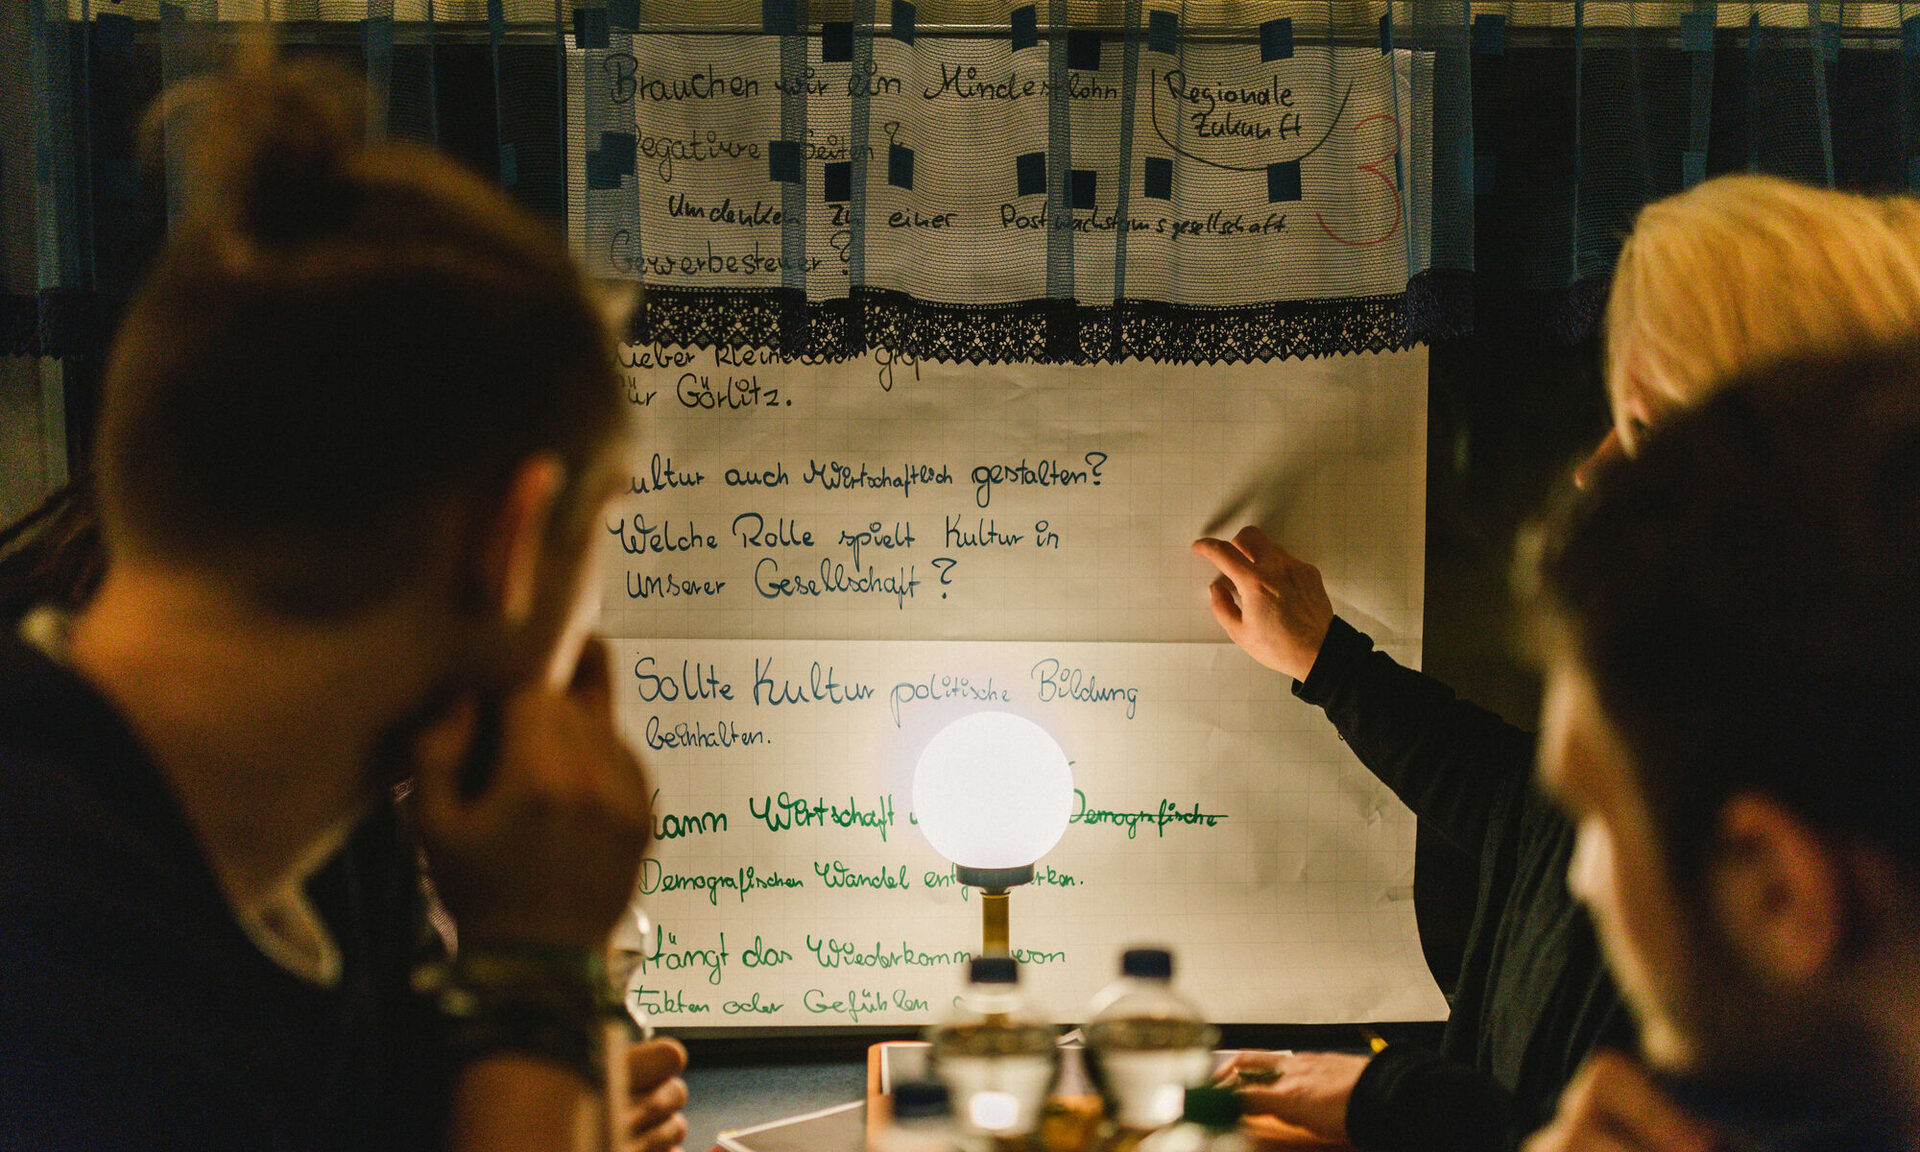 Brauchen wir ein Mindestlohn
Regionale
Zukunft
3
Negative Seiten?
Umdenken zu einer Postwachstumsgesellschaft.
Gewerbesteuer?
Lieber kleine
für Görlitz.
Kultur auch Wirtschaftlich gestalten?
Welche Rolle spielt Kultur in
unserer Gesellschaft?
Sollte Kultur politische Bildung
beinhalten.
Kann Wirtschaft Demografische
Demografischen Wandel
Hängt das Wiederkommen von
Fakten oder Gefühlen